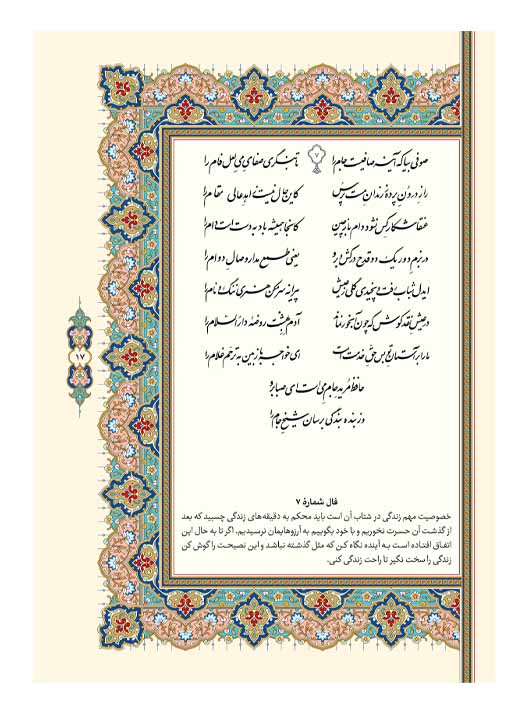 ۷
صوفی بیا که آینه صافیست جام را تا بنگری صفای می لعل فام را
راز درون پرده ز رندان مست پرس کاین حال نیست زاهد عالی مقام را
عنقا شکار کس نشود دام بازچین کانجا همیشه باد به دست است دام را
در بزم دور یک دو قدح درکش و برو یعنی طمع مدار وصال دوام را
ای دل شباب رفت و نچیدی گلی ز عیش پیرانه سر مکن هنری ننگ و نام را
در عیش نقد کوش که چون آبخور نماند آدم بهشت روضهٔ دارالسلام را
ما را بر آستان تو بس حق خدمت است ای خواجه بازبین به ترحم غلام را
حافظ مرید جام می است ای صبا برو
وز بنده بندگی برسان شیخ جام را
۱۷
فال شمارهٔ ۷
خصوصیت مهم زندگی در شتاب آن است باید محکم به دقیقه‌های زندگی چسبید که بعد
از گذشت آن حسرت نخوریم و با خود بگوییم به آرزوهایمان نرسیدیم. اگر تا به حال این
اتفاق افتاده است به آینده نگاه کن که مثل گذشته نباشد و این نصیحت را گوش کن
زندگی را سخت نگیر تا راحت زندگی کنی.